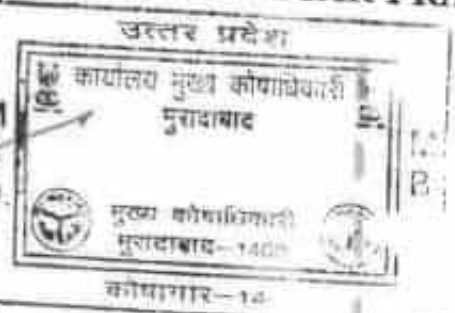 उत्तर प्रदेश
कार्यालय मुख्य कोषाधिकारी
मुरादाबाद
मुख्य कोषाधिकारी
मुरादाबाद-1400
कोषागार-14